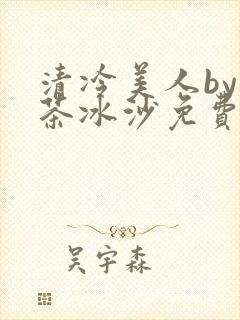 清冷美人by
茶冰沙免費
吴宇森